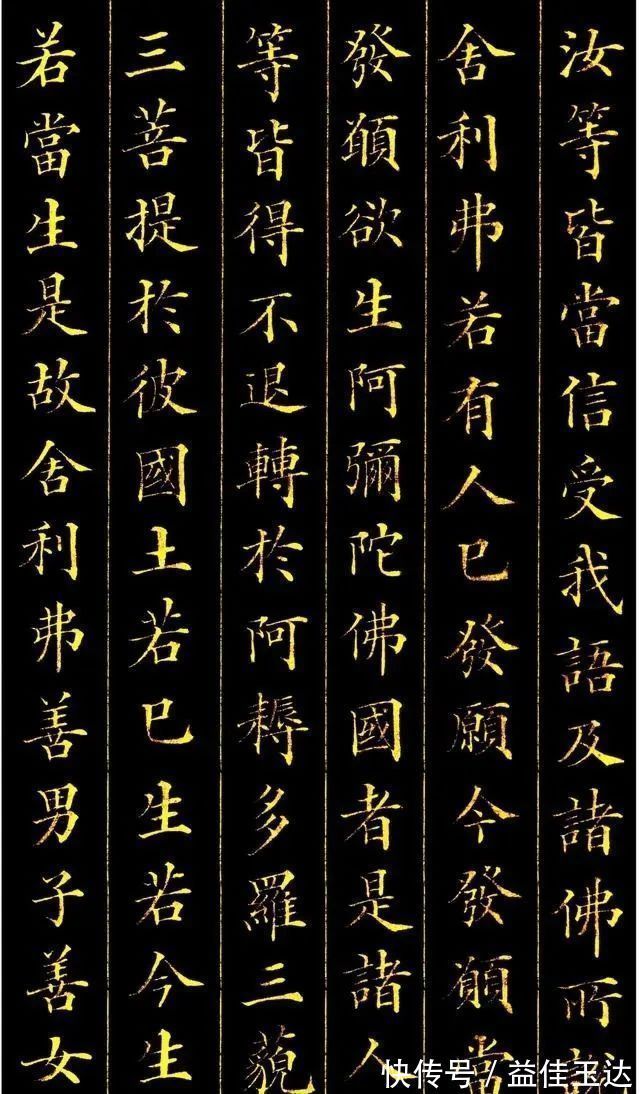 汝等皆當信受我語及諸佛所
舍利弗若有人已發願今發願當
發願欲生阿彌陀佛國者是諸人
等皆得不退轉於阿耨多羅三藐
三菩提於彼國土若已生若今生
若當生是故舍利弗善男子善女
快传号／益佳玉达